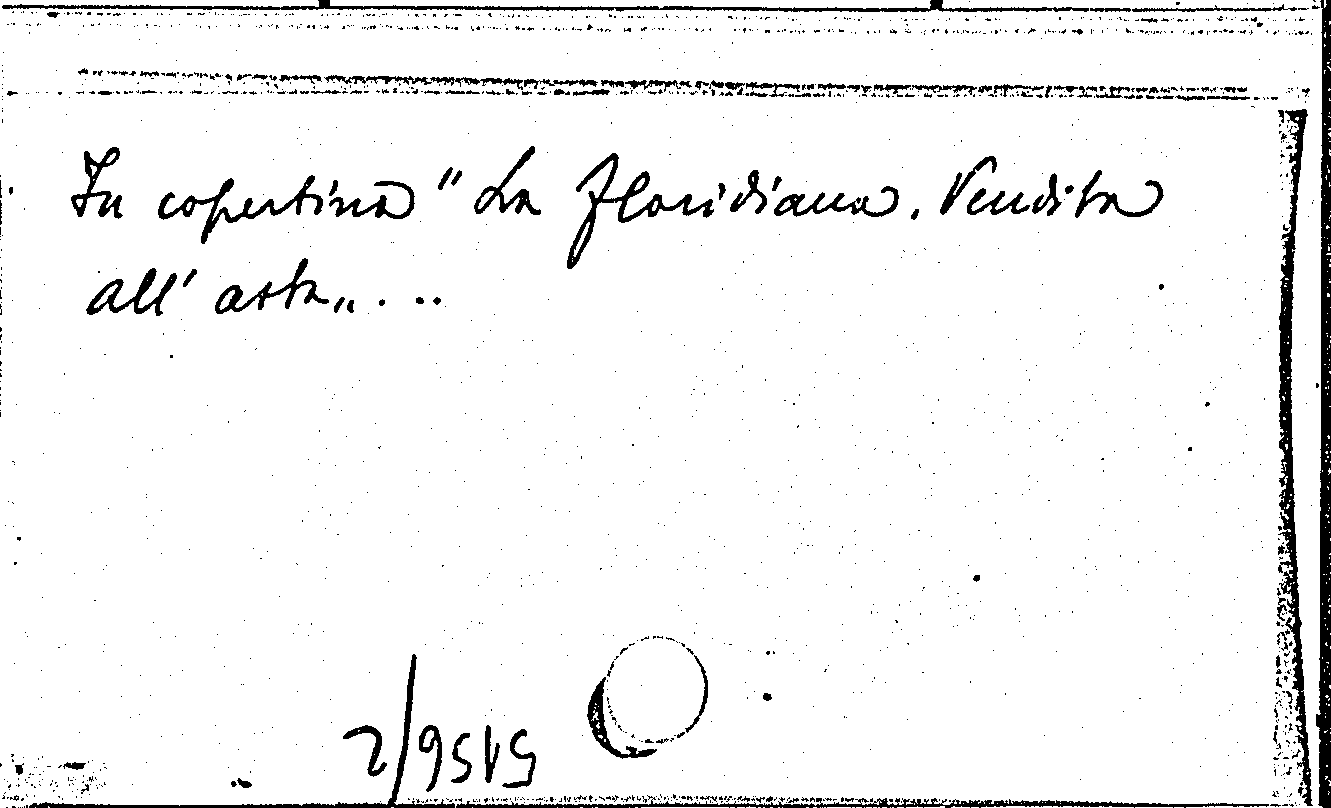 In copertina "La Floridiana. Vendita
all' asta„ . ..
5156/2